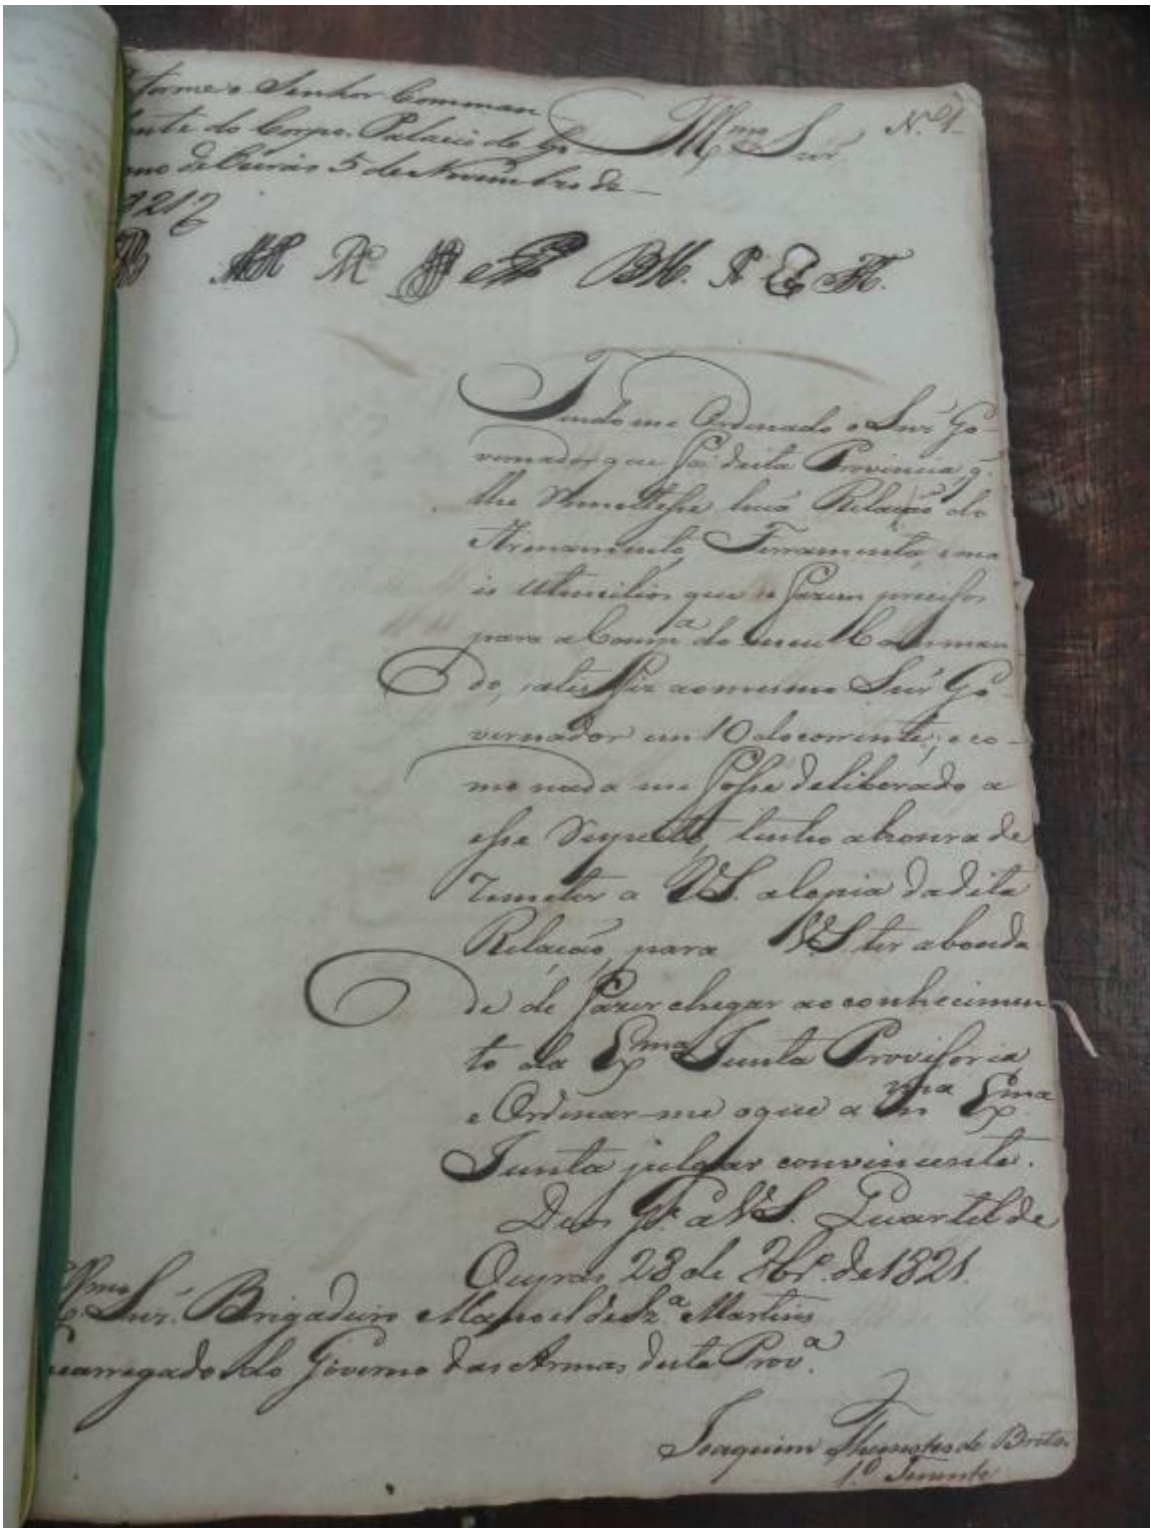 forme o Senhor Comman
dente do Corpo. Palacio do Go
erno de Oeiras 5 de Novembro de
821
Illmo Snr N.º 1
Tendo me Ordenado o Snr Go-
vernador que foi desta Provincia, q.
lhe Remettesse huã Relação do
Armamento, Ferramenta, e ma
is Utencilios que se fazem precisos
para a Comp.ª do meu Comman
do, satisfiz ao mesmo Snr Go-
vernador em 10 do corrente; e co-
mo nada me fosse deliberado a
esse Respeito, tenho a honra de
Remeter a VS. a Copia da dita
Relação, para VS ter a bonda
de de fazer chegar ao conhecimen
to da Exma Junta Provisoria
e Ordinar-me o que a m.ma Exma
Junta julgar conviniente.
Deos G.e a VS. Quartel de
Oeyras 28 de 8br.º de 1821.
Illmo Snr. Brigadeiro Manoel de Sz.ª Martins
ncarregado do Governo das Armas desta Prov.ª
Joaquim de Brito
1.º Tenente